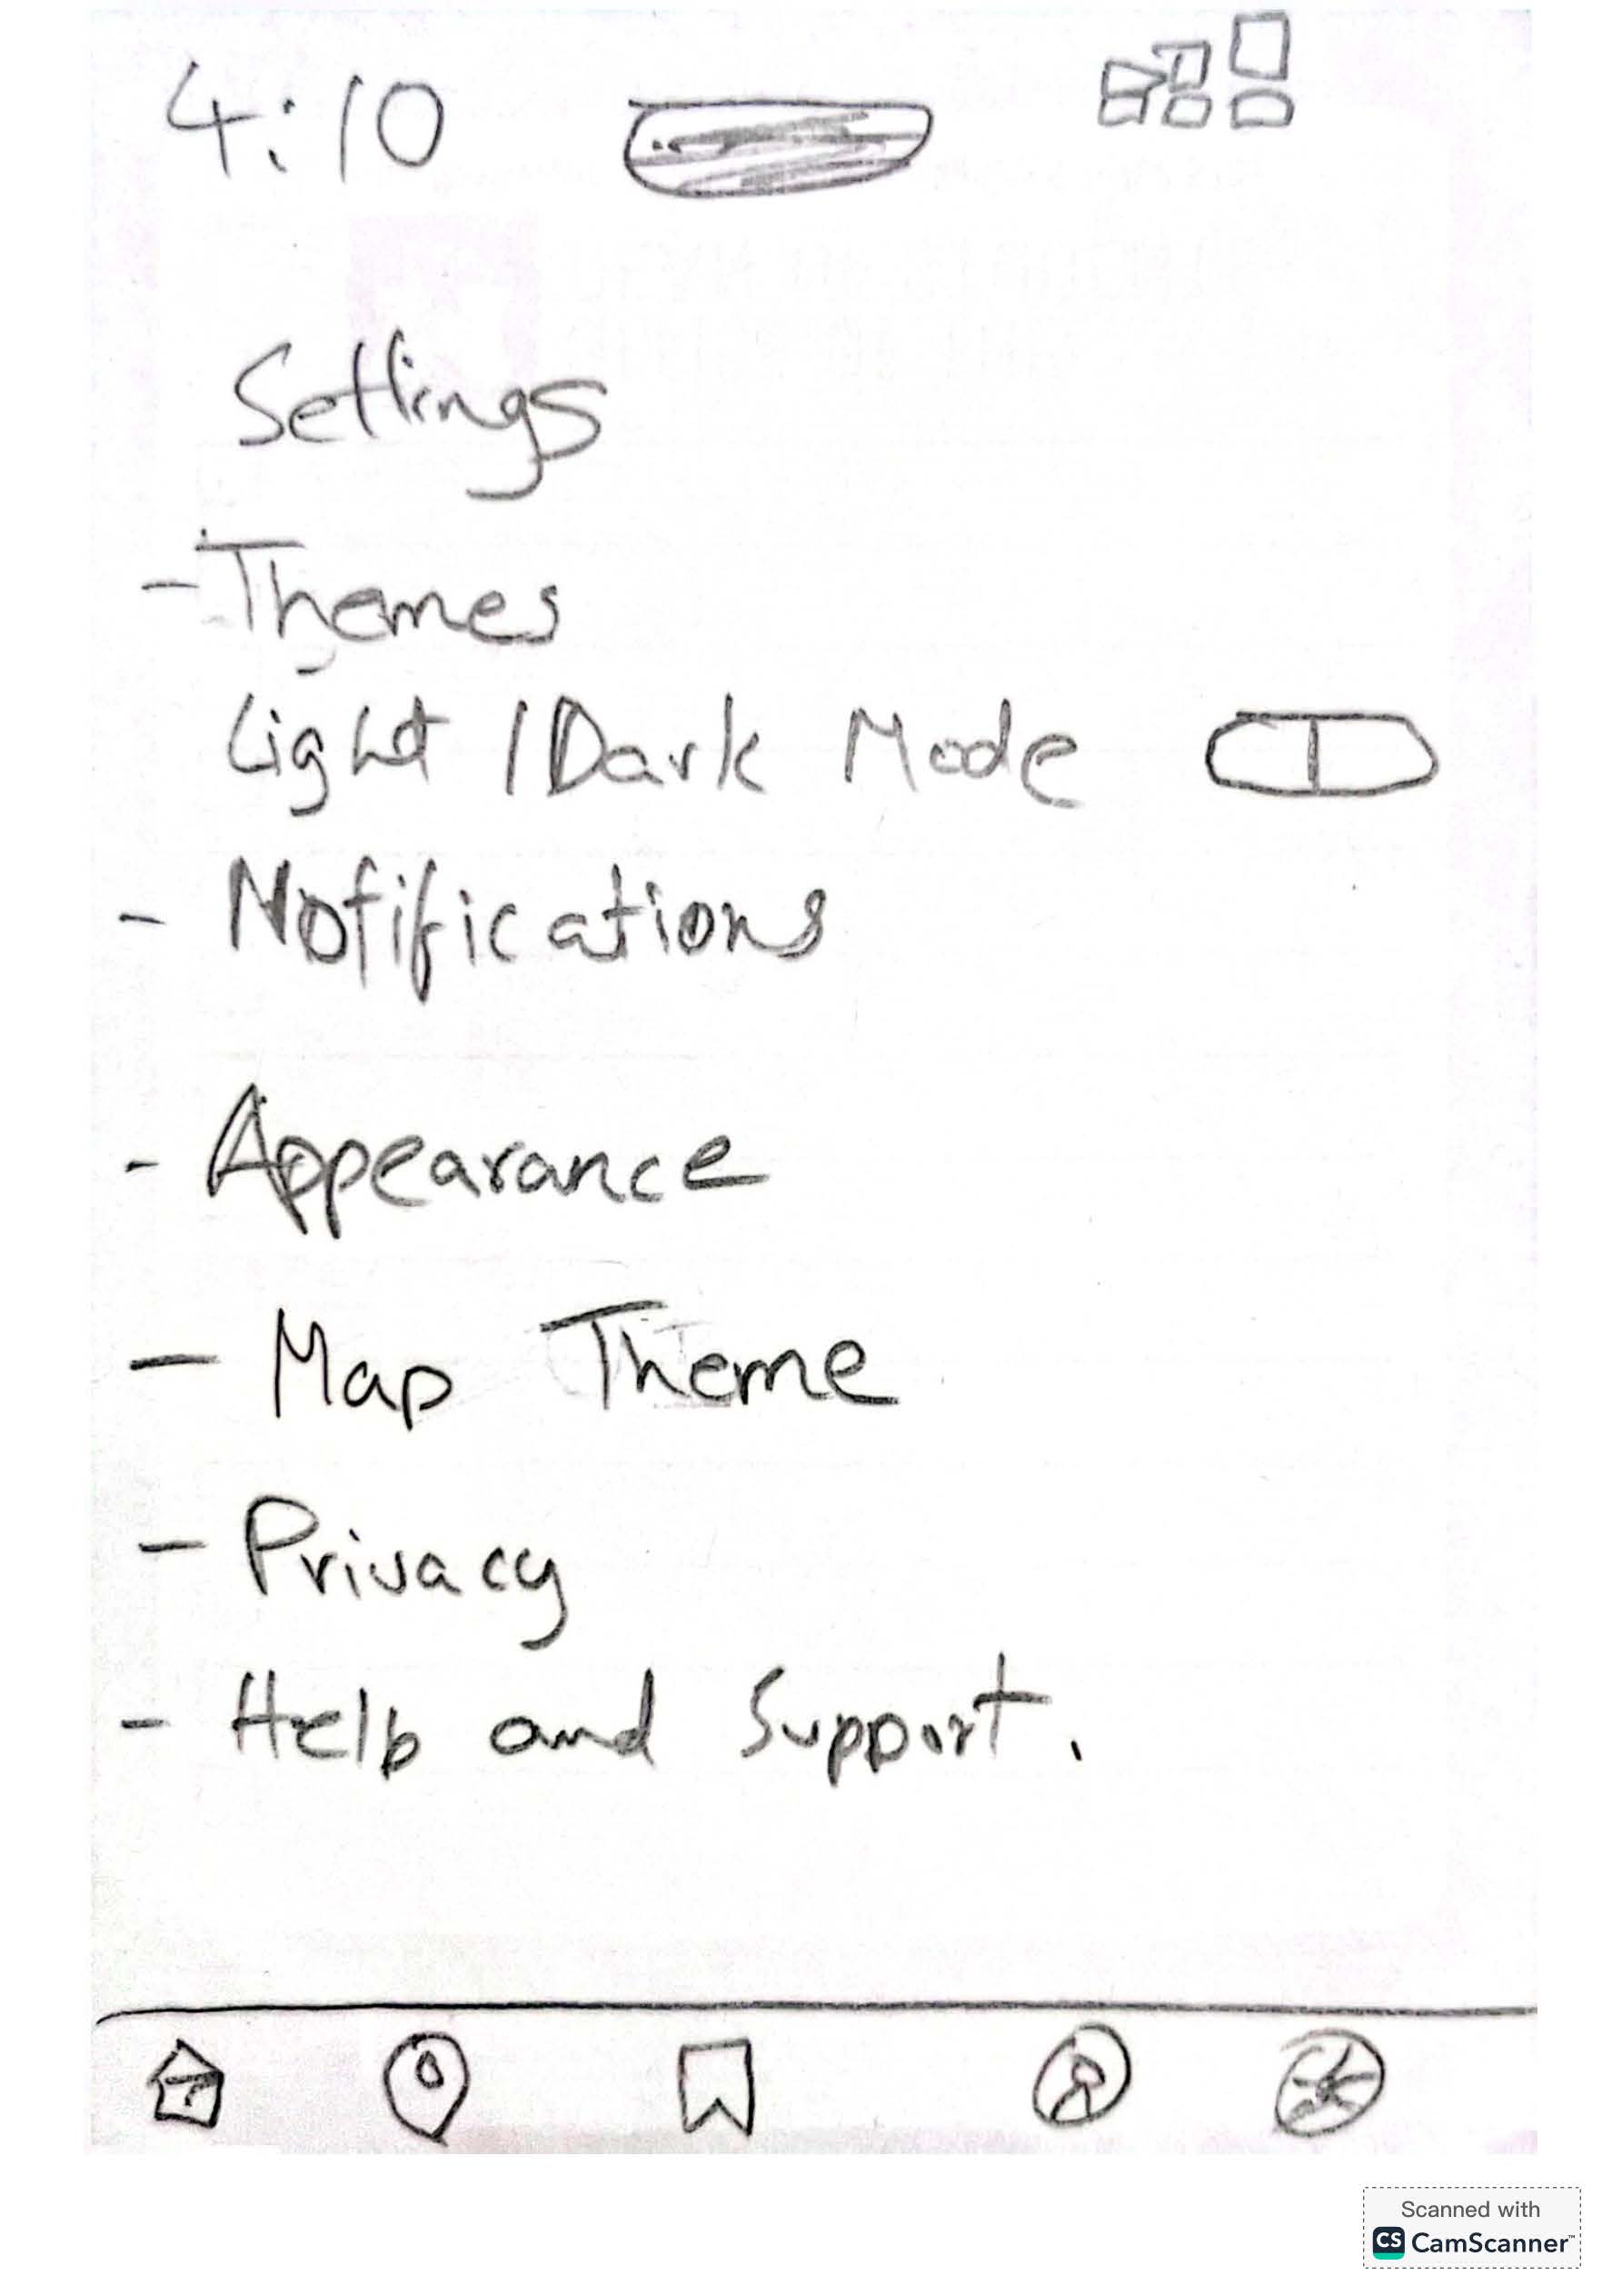 4:10
Settings
- Themes
Light / Dark Mode
- Notifications
- Appearance
- Map Theme
- Privacy
- Help and Support.
Scanned with
CS CamScanner™